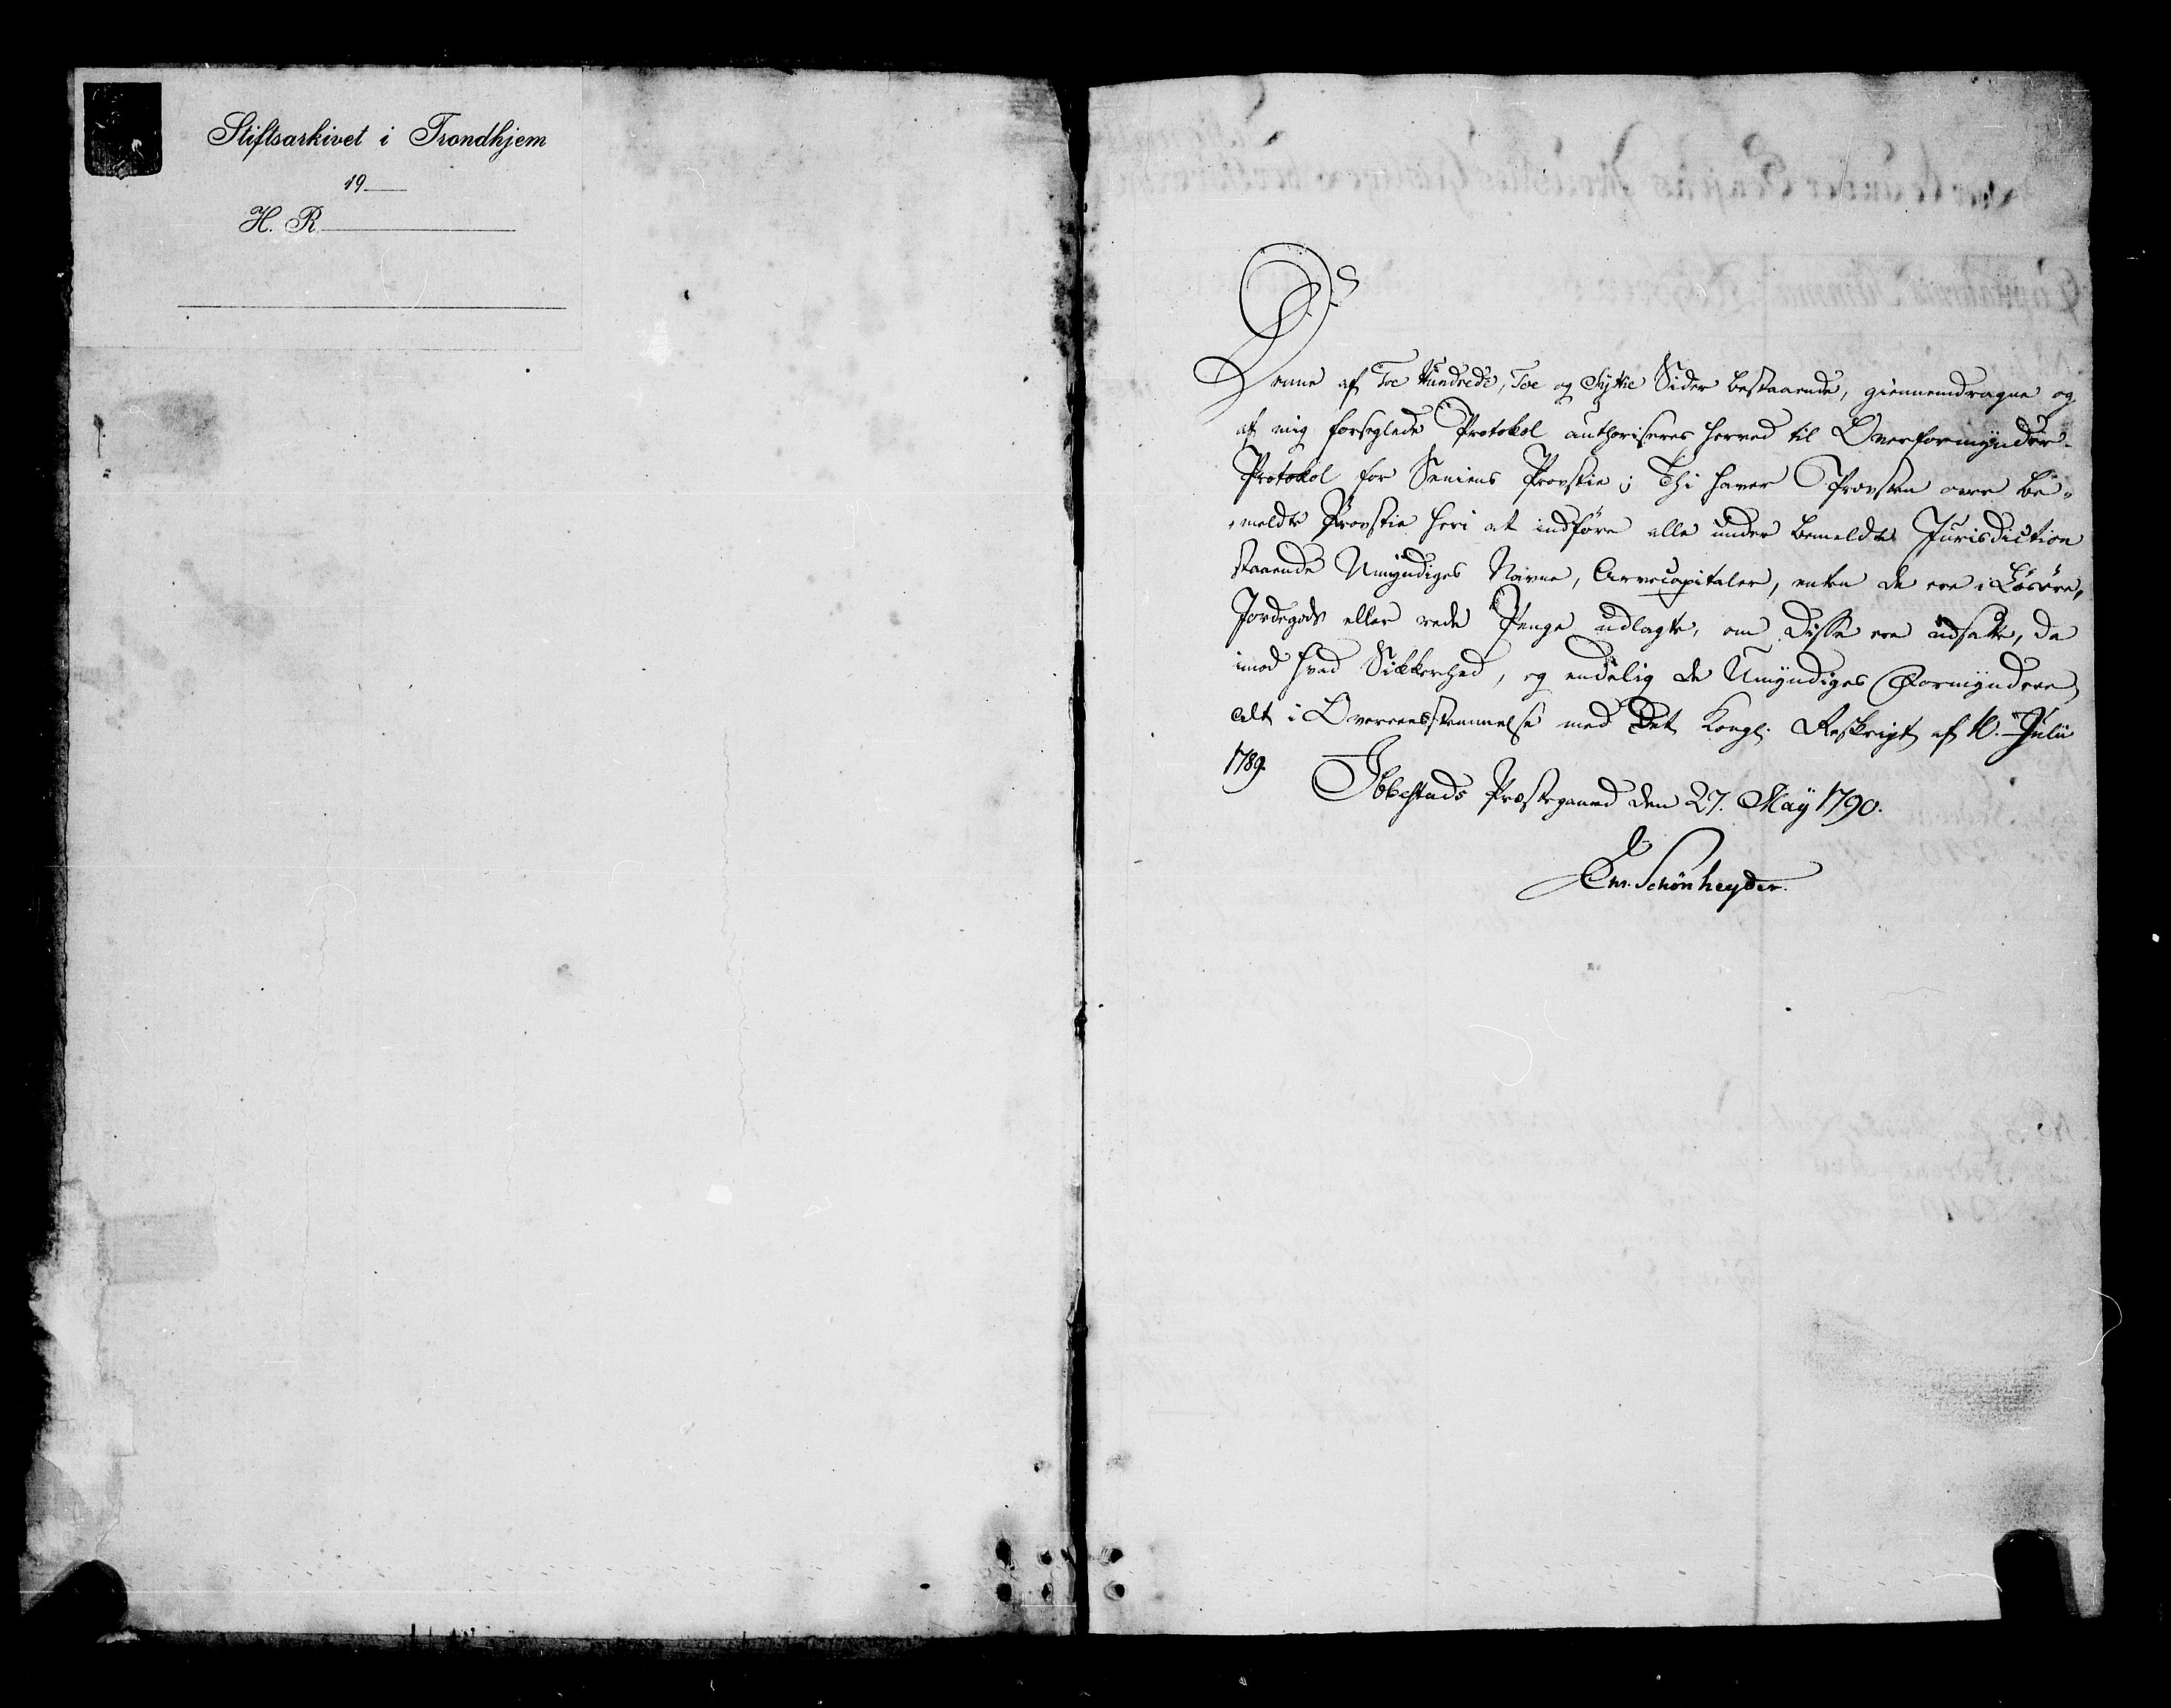 Stiftsarkivet i Trondhjem
19
H. R.
Denne af Toe Hundrede, Toe og Sytie Sider bestaaende, giennemdragne og
af mig forseglede Protokol authoriseres herved til Overformynder-
Protokol for Seniens Provstie; Thi haver Provsten over be-
meldte Provstie heri at indføre alle under bemeldte Jurisdiction
staaende Umyndiges Navne, Arvecapitaler, enten de ere i Løsøre,
Jordegods eller rede Penge udlagte, om disse ere udsatte, da
imod hvad Sikkerhed, og endelig de Umyndiges Formyndere,
alt i Overeensstemmelse med Det Kongl. Reskript af 10. Julii
1789.
Ibbestads Præstegaard den 27. Maÿ 1790.
Schønheyder.